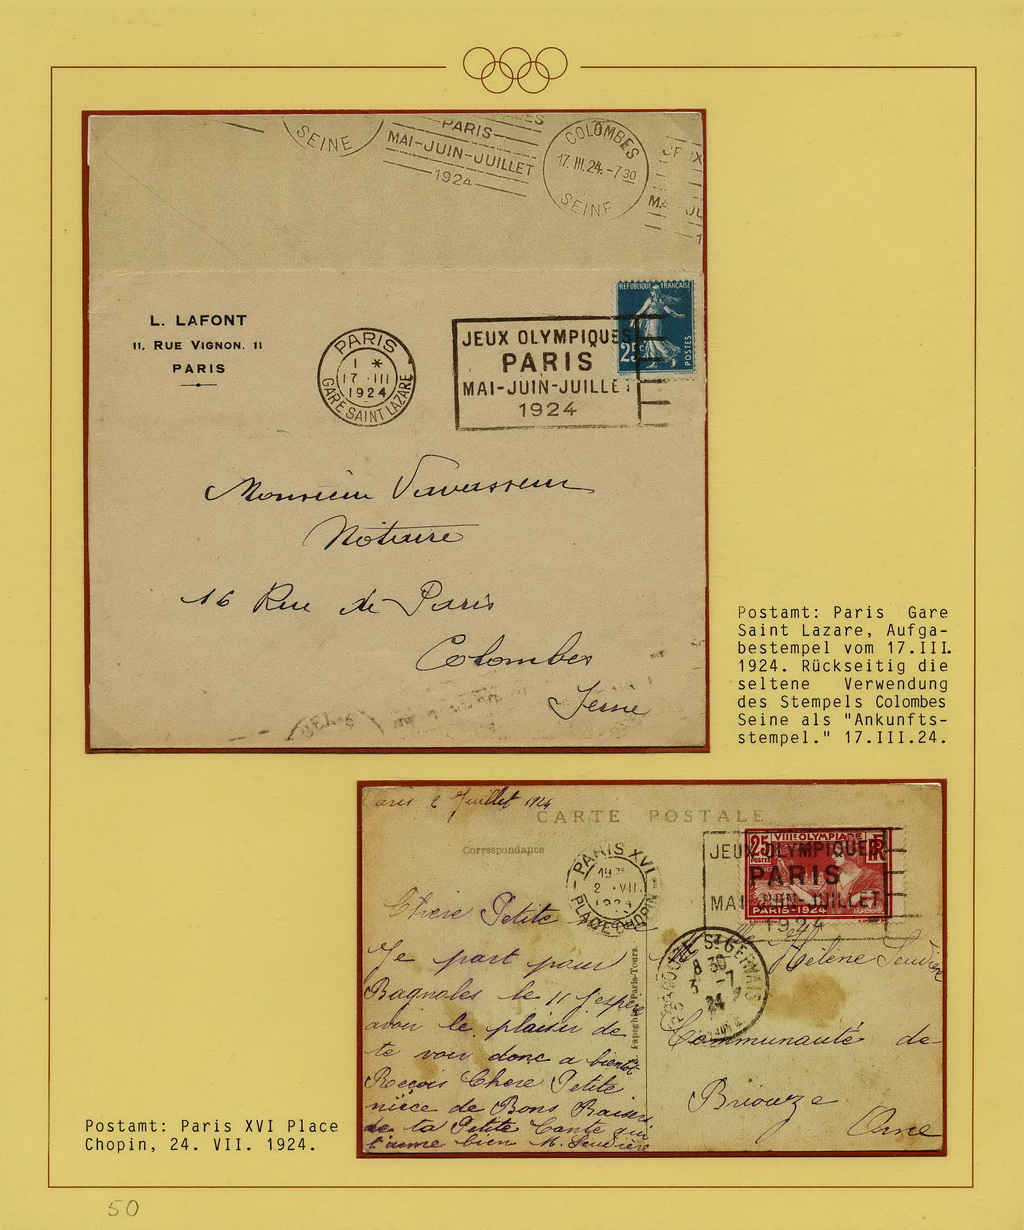 SEINE
PARIS
MAI-JUIN-JUILLET
1924
COLOMBES
17.III.24.-7 30
SEINE
L. LAFONT
11, RUE VIGNON, 11
PARIS
PARIS
1 *
17 ·III
1924
GARE SAINT LAZARE
JEUX OLYMPIQUES
PARIS
MAI-JUIN-JUILLET
1924
REPUBLIQUE FRANÇAISE
25c
POSTES
Monsieur Vavasseur
Notaire
16 Rue de Paris
Colombes
Seine
Postamt: Paris Gare
Saint Lazare, Aufga-
bestempel vom 17.III.
1924. Rückseitig die
seltene Verwendung
des Stempels Colombes
Seine als "Ankunfts-
stempel." 17.III.24.
Paris 2 Juillet 1924
CARTE POSTALE
Correspondance
PARIS XVI
19
2 ·VII
1924
PLACE CHOPIN
JEUX OLYMPIQUES
PARIS
MAI-JUIN-JUILLET
1924
VIIIe OLYMPIADE
25c
POSTES
RF
PARIS-1924
Chère Petite
Je part pour
Bagnoles le 11 J'espère
avoir le plaisir de
te voir donc a bientot
Reçois Chere Petite
nièce de Bons Baisers
de ta Petite Tante qui
t'aime bien M.
Hélène
Communauté de
Briouze
Orne
St GERMAIS
8 30
3 -7
24
Paris-Tours.
Postamt: Paris XVI Place
Chopin, 24. VII. 1924.
50